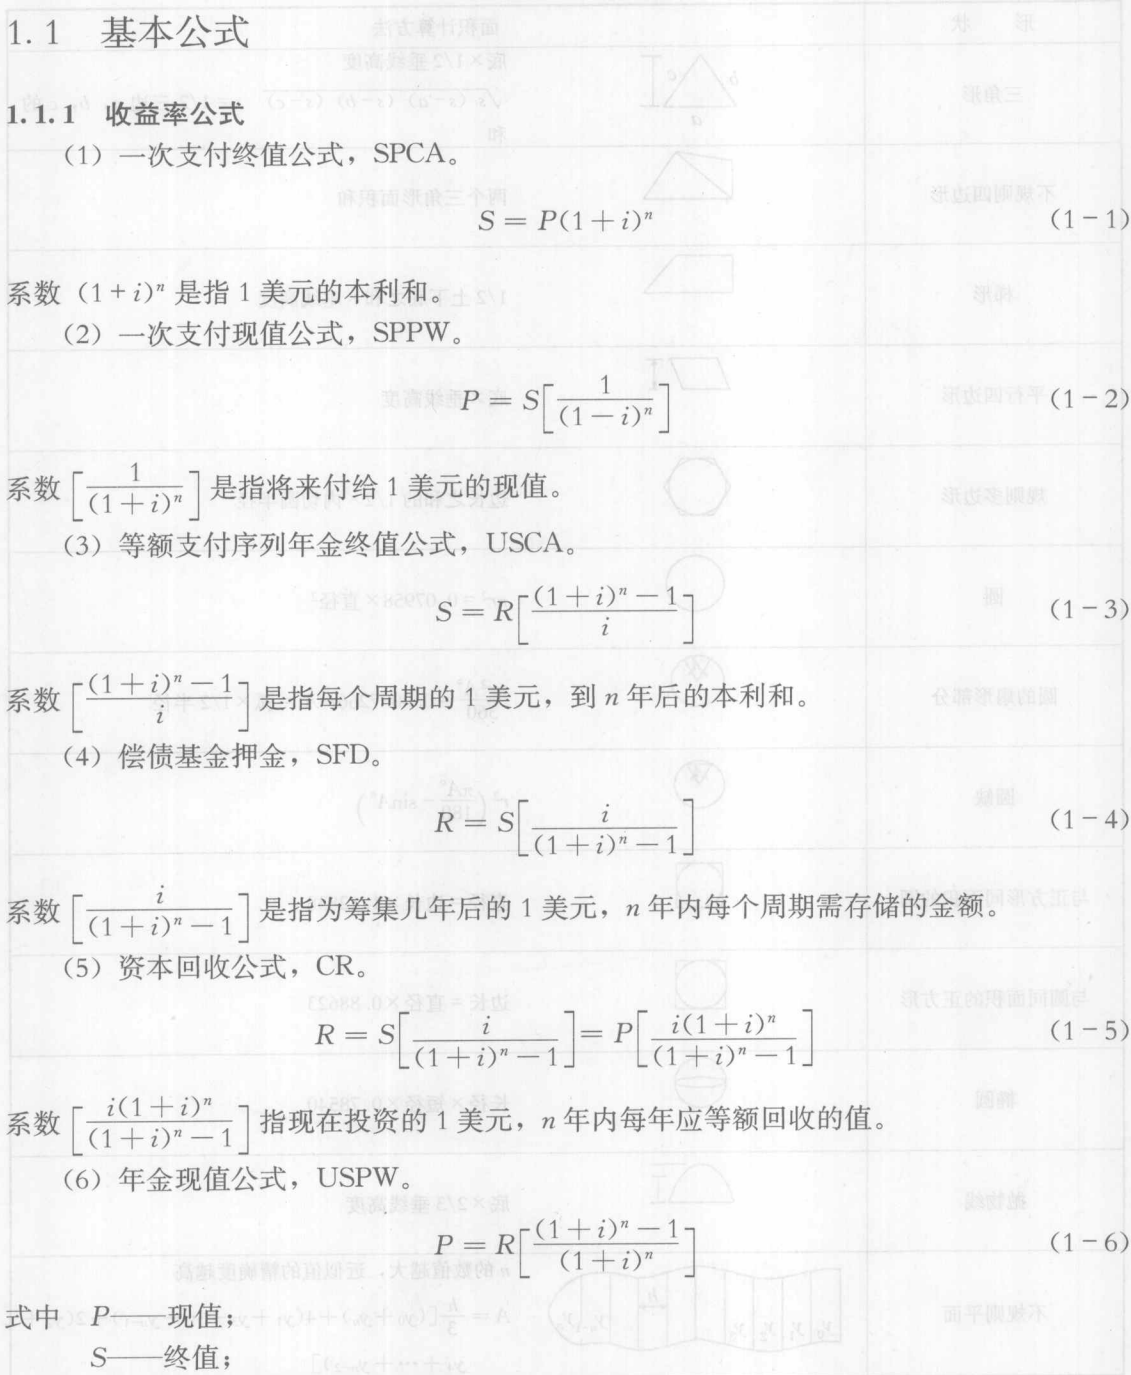 1.1 基本公式
1.1.1 收益率公式
（1）一次支付终值公式，SPCA。
S = P(1+i)^n (1-1)
系数 (1+i)^n 是指 1 美元的本利和。
（2）一次支付现值公式，SPPW。
P = S[1/(1-i)^n] (1-2)
系数 [1/(1+i)^n] 是指将来付给 1 美元的现值。
（3）等额支付序列年金终值公式，USCA。
S = R[((1+i)^n-1)/i] (1-3)
系数 [((1+i)^n-1)/i] 是指每个周期的 1 美元，到 n 年后的本利和。
（4）偿债基金押金，SFD。
R = S[i/((1+i)^n-1)] (1-4)
系数 [i/((1+i)^n-1)] 是指为筹集几年后的 1 美元，n 年内每个周期需存储的金额。
（5）资本回收公式，CR。
R = S[i/((1+i)^n-1)] = P[i(1+i)^n/((1+i)^n-1)] (1-5)
系数 [i(1+i)^n/((1+i)^n-1)] 指现在投资的 1 美元，n 年内每年应等额回收的值。
（6）年金现值公式，USPW。
P = R[((1+i)^n-1)/(1+i)^n] (1-6)
式中 P——现值；
S——终值；